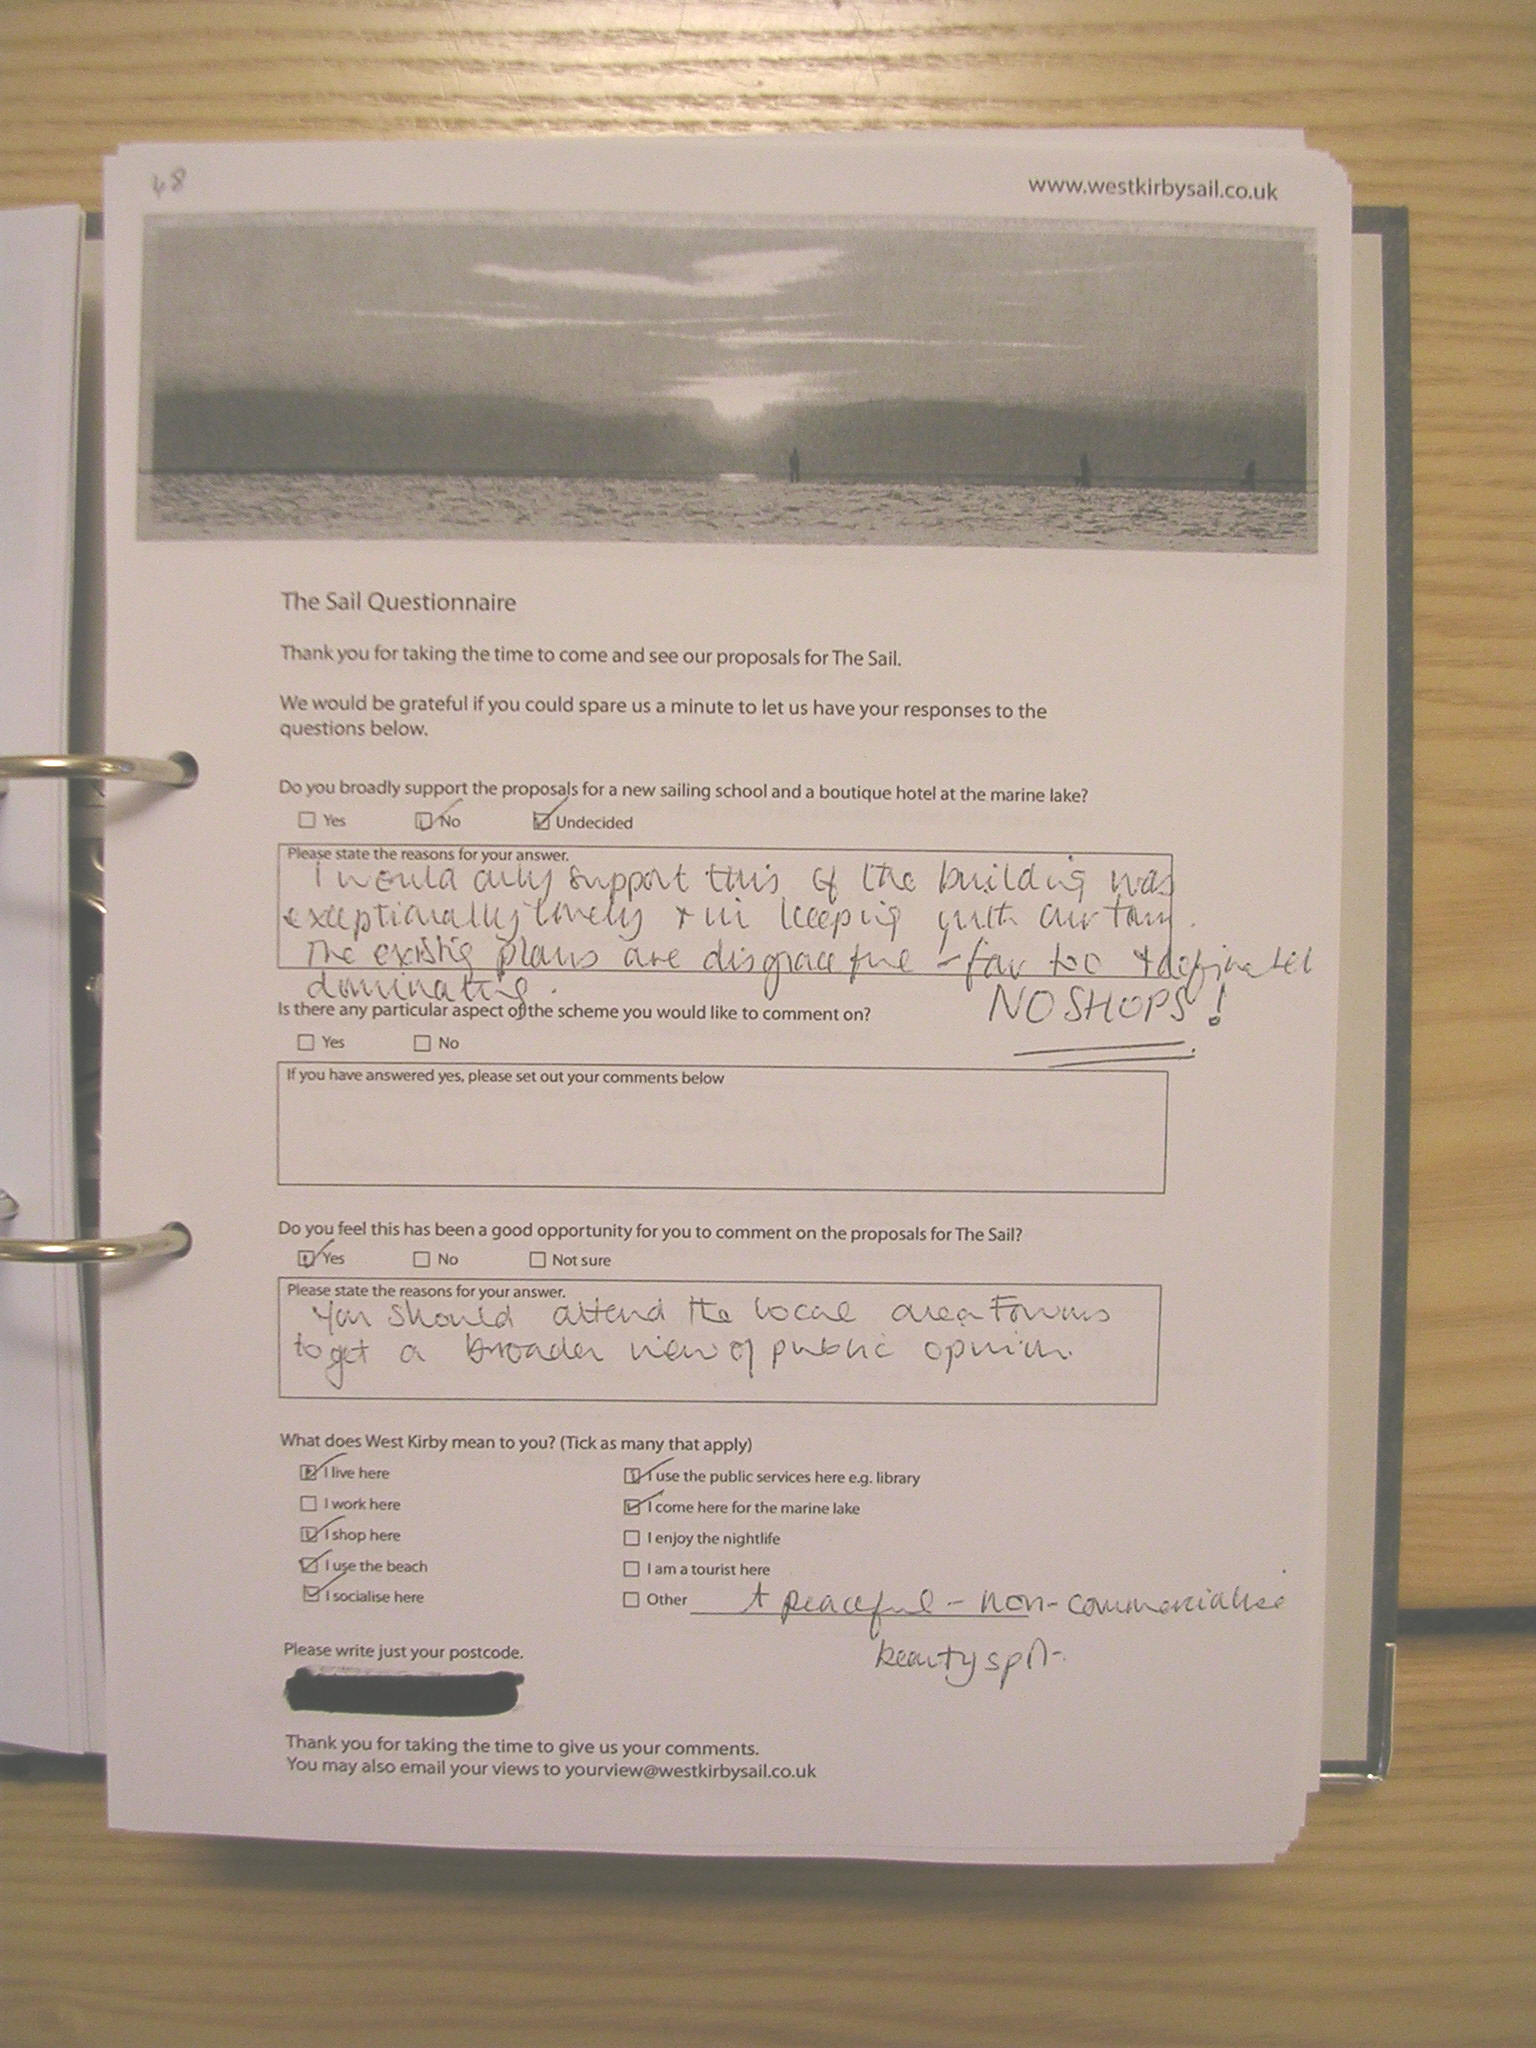 48
www.westkirbysail.co.uk
The Sail Questionnaire
Thank you for taking the time to come and see our proposals for The Sail.
We would be grateful if you could spare us a minute to let us have your responses to the
questions below.
Do you broadly support the proposals for a new sailing school and a boutique hotel at the marine lake?
Yes No Undecided
Please state the reasons for your answer.
I would only support this if the building was
exceptionally lovely + in keeping with our town.
The existing plans are disgraceful - far too + definately
dominating. NO SHOPS!
Is there any particular aspect of the scheme you would like to comment on?
Yes No
If you have answered yes, please set out your comments below
Do you feel this has been a good opportunity for you to comment on the proposals for The Sail?
Yes No Not sure
Please state the reasons for your answer.
You should attend the local area Forums
to get a broader view of public opinion.
What does West Kirby mean to you? (Tick as many that apply)
I live here I use the public services here e.g. library
I work here I come here for the marine lake
I shop here I enjoy the nightlife
I use the beach I am a tourist here
I socialise here Other A peaceful - non-commercialise
beauty spot.
Please write just your postcode.
Thank you for taking the time to give us your comments.
You may also email your views to yourview@westkirbysail.co.uk